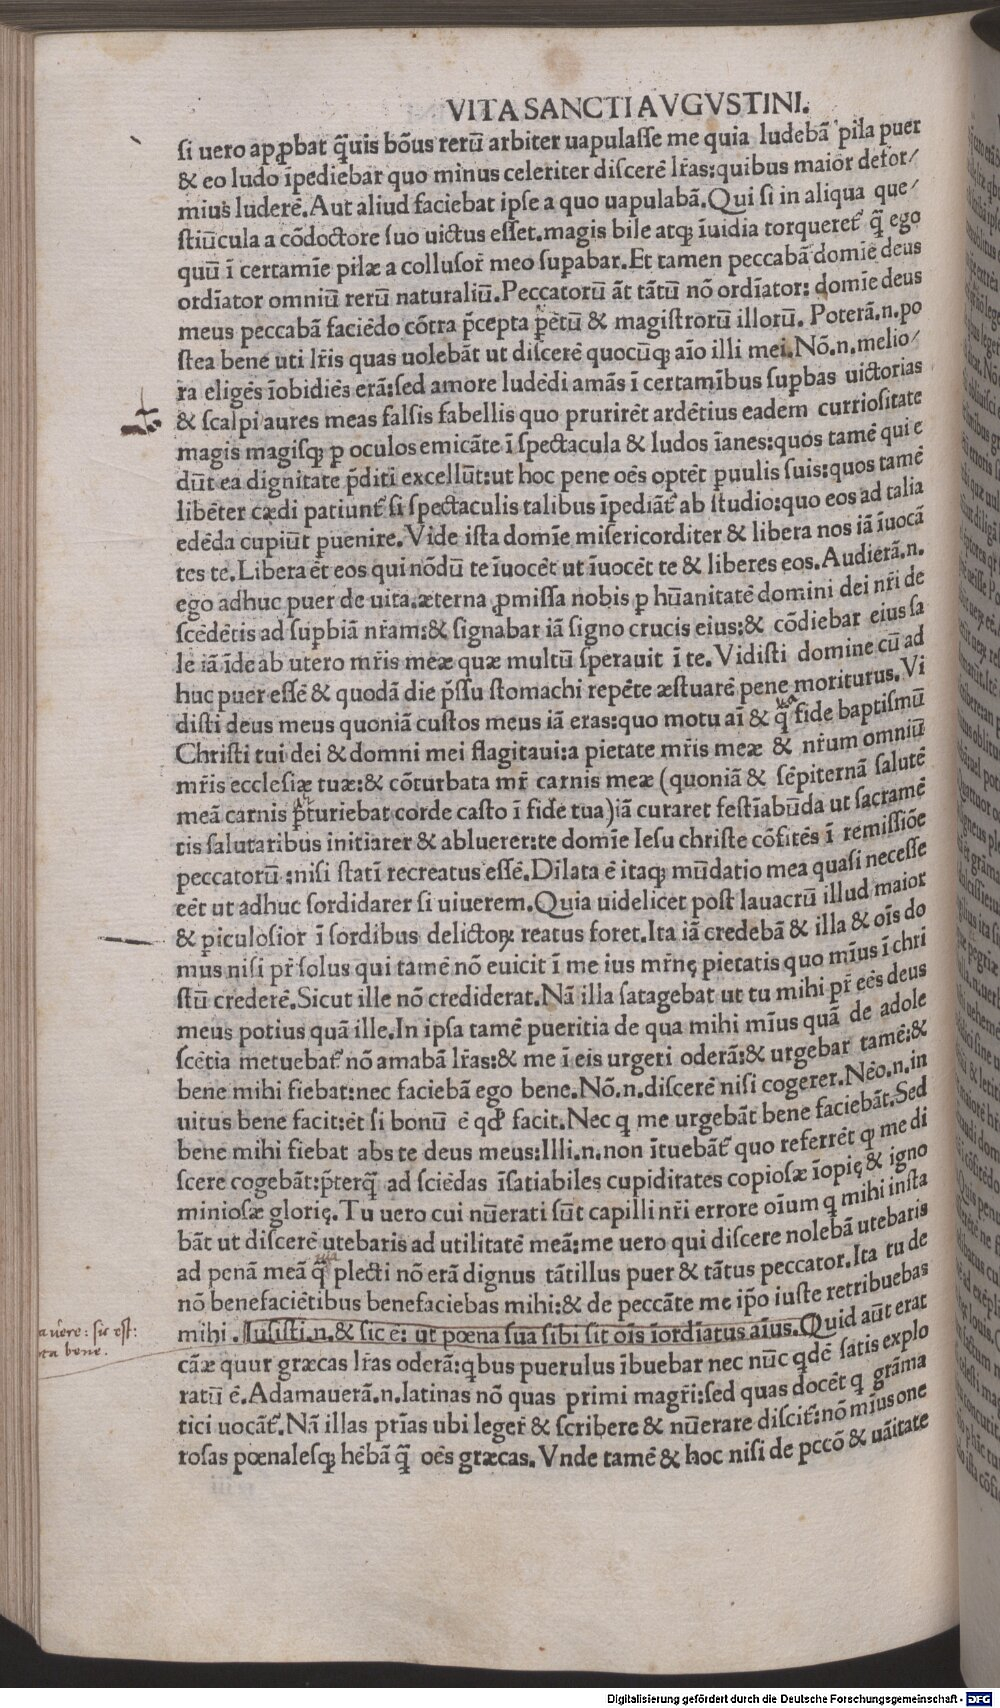 VITA SANCTI AVGVSTINI.
si uero apꝓbat q̃uis bõus rerũ arbiter uapulasse me quia ludebã pila puer
& eo ludo ĩpediebar quo minus celeriter discerẽ lr̃as:quibus maior defor/
mius luderẽ.Aut aliud faciebat ipse a quo uapulabã.Qui si in aliqua que/
stiũcula a cõdoctore suo uictus esset.magis bile atq; ĩuidia torqueret̃ q̃ ego
quũ ĩ certamĩe pilæ a collusor̃ meo supabar.Et tamen peccabã domĩe deus
ordĩator omniũ rerũ naturaliũ.Peccatorũ ãt tãtũ nõ ordĩator: domĩe deus
meus peccabã faciẽdo cõtra p̃cepta pẽtũ & magistrorũ illorũ. Poterã.n.po
stea bene uti lr̃is quas uolebãt ut discerẽ quocũq; aĩo illi mei.Nõ.n.melio/
ra eligẽs ĩobidiẽs erã:sed amore ludẽdi amãs ĩ certamĩbus supbas uictorias
& scalpi aures meas falsis fabellis quo prurirẽt ardẽtius eadem curriositate
magis magisq; ꝑ oculos emicãte ĩ spectacula & ludos ĩanes:quos tamẽ qui e
dũt ea dignitate p̃diti excellũt:ut hoc pene oẽs optẽt puulis suis:quos tamẽ
libẽter cædi patiunt̃ si spectaculis talibus ĩpediãt̃ ab studio:quo eos ad talia
edẽda cupiũt puenire.Vide ista domĩe misericorditer & libera nos iã ĩuocã
tes te.Libera ẽt eos qui nõdũ te ĩuocẽt ut ĩuocẽt te & liberes eos.Audierã.n.
ego adhuc puer de uita.æterna ꝓmissa nobis ꝑ hũanitatẽ domini dei nr̃i de
scẽdẽtis ad supbiã nr̃am:& signabar iã signo crucis eius:& cõdiebar eius sa
le iã ĩde ab utero mr̃is meæ quæ multũ sperauit ĩ te.Vidisti domine cũ ad
huc puer essẽ & quodã die p̃ssu stomachi repẽte æstuarẽ pene moriturus.Vi
disti deus meus quoniã custos meus iã eras:quo motu aĩ & q̃ fide baptismũ
Christi tui dei & domni mei flagitaui:a pietate mr̃is meæ & nr̃um omniũ
mr̃is ecclesiæ tuæ:& cõturbata mr̃ carnis meæ (quoniã & sẽpiternã salutẽ
meã carnis p̃turiebat corde casto ĩ fide tua)iã curaret festĩabũda ut sacramẽ
tis salutaribus initiarer & abluerer:te domĩe Iesu christe cõfitẽs ĩ remissiõe
peccatorũ :nisi statĩ recreatus essẽ.Dilata ẽ itaq; mũdatio mea quasi necesse
eẽt ut adhuc sordidarer si uiuerem.Quia uidelicet post lauacrũ illud maior
& piculosior ĩ sordibus delictoꝝ reatus foret.Ita iã credebã & illa & oĩs do
mus nisi pr̃ solus qui tamẽ nõ euicit ĩ me ius mr̃nę pietatis quo mĩus ĩ chri
stũ crederẽ.Sicut ille nõ crediderat.Nã illa satagebat ut tu mihi pr̃ eẽs deus
meus potius quã ille.In ipsa tamẽ pueritia de qua mihi mĩus quã de adole
scẽtia metuebat̃ nõ amabã lr̃as:& me ĩ eis urgeri oderã:& urgebar tamẽ:&
bene mihi fiebat:nec faciebã ego bene.Nõ.n.discerẽ nisi cogerer.Nẽo.n.in
uitus bene facit:ẽt si bonũ ẽ qđ facit.Nec q me urgebãt bene faciebãt.Sed
bene mihi fiebat abs te deus meus:Illi.n.non ĩtuebãt̃ quo referrẽt qđ me di
scere cogebãt:p̃terq̃ ad sciẽdas ĩsatiabiles cupiditates copiosæ ĩopię & igno
miniosæ glorię.Tu uero cui nũerati sũt capilli nr̃i errore oĩum q mihi insta
bãt ut discerẽ utebaris ad utilitatẽ meã:me uero qui discere nolebã utebaris
ad penã meã q̃ plecti nõ erã dignus tãtillus puer & tãtus peccator.Ita tu de
nõ benefaciẽtibus benefaciebas mihi:& de peccãte me ip̃o iuste retribuebas
mihi .Iusisti.n.& sic ẽ: ut pœna sua sibi sit oĩs ĩordĩatus aĩus.Quid aũt erat
cãæ quur græcas lr̃as oderã:qbus puerulus ĩbuebar nec nũc qdẽ satis explo
ratũ ẽ.Adamauerã.n.latinas nõ quas primi magr̃i:sed quas docẽt q grãma
tici uocãt̃.Nã illas prĩas ubi leger̃ & scribere & nũerare discit̃:nõ mĩus one
rosas pœnalesq; hẽbã q̃ oẽs græcas.Vnde tamẽ & hoc nisi de pccõ & uãitate
a vere: sic est:
ta bene.
Digitalisierung gefördert durch die Deutsche Forschungsgemeinschaft - DFG